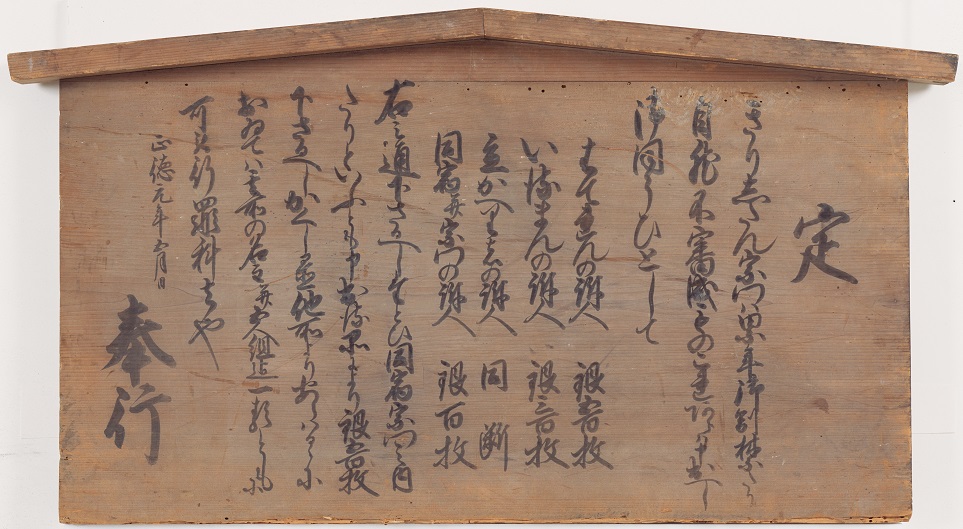 定
きりしたん宗門は累年御制禁たり
自然不審成もの有之は申出へし
御ほうひとして
はてれんの訴人 銀五百枚
いるまんの訴人 銀三百枚
立かへり者の訴人 同断
同宿并宗門の訴人 銀百枚
右之通下さるへしたとひ同宿宗門之内
たりといふとも申出る品により銀五百枚
下さるへしかくし置他所よりあらはるゝに
おゐては其所の名主并五人組迄一類ともに
可被行罪科者也
正徳元年五月日
奉行